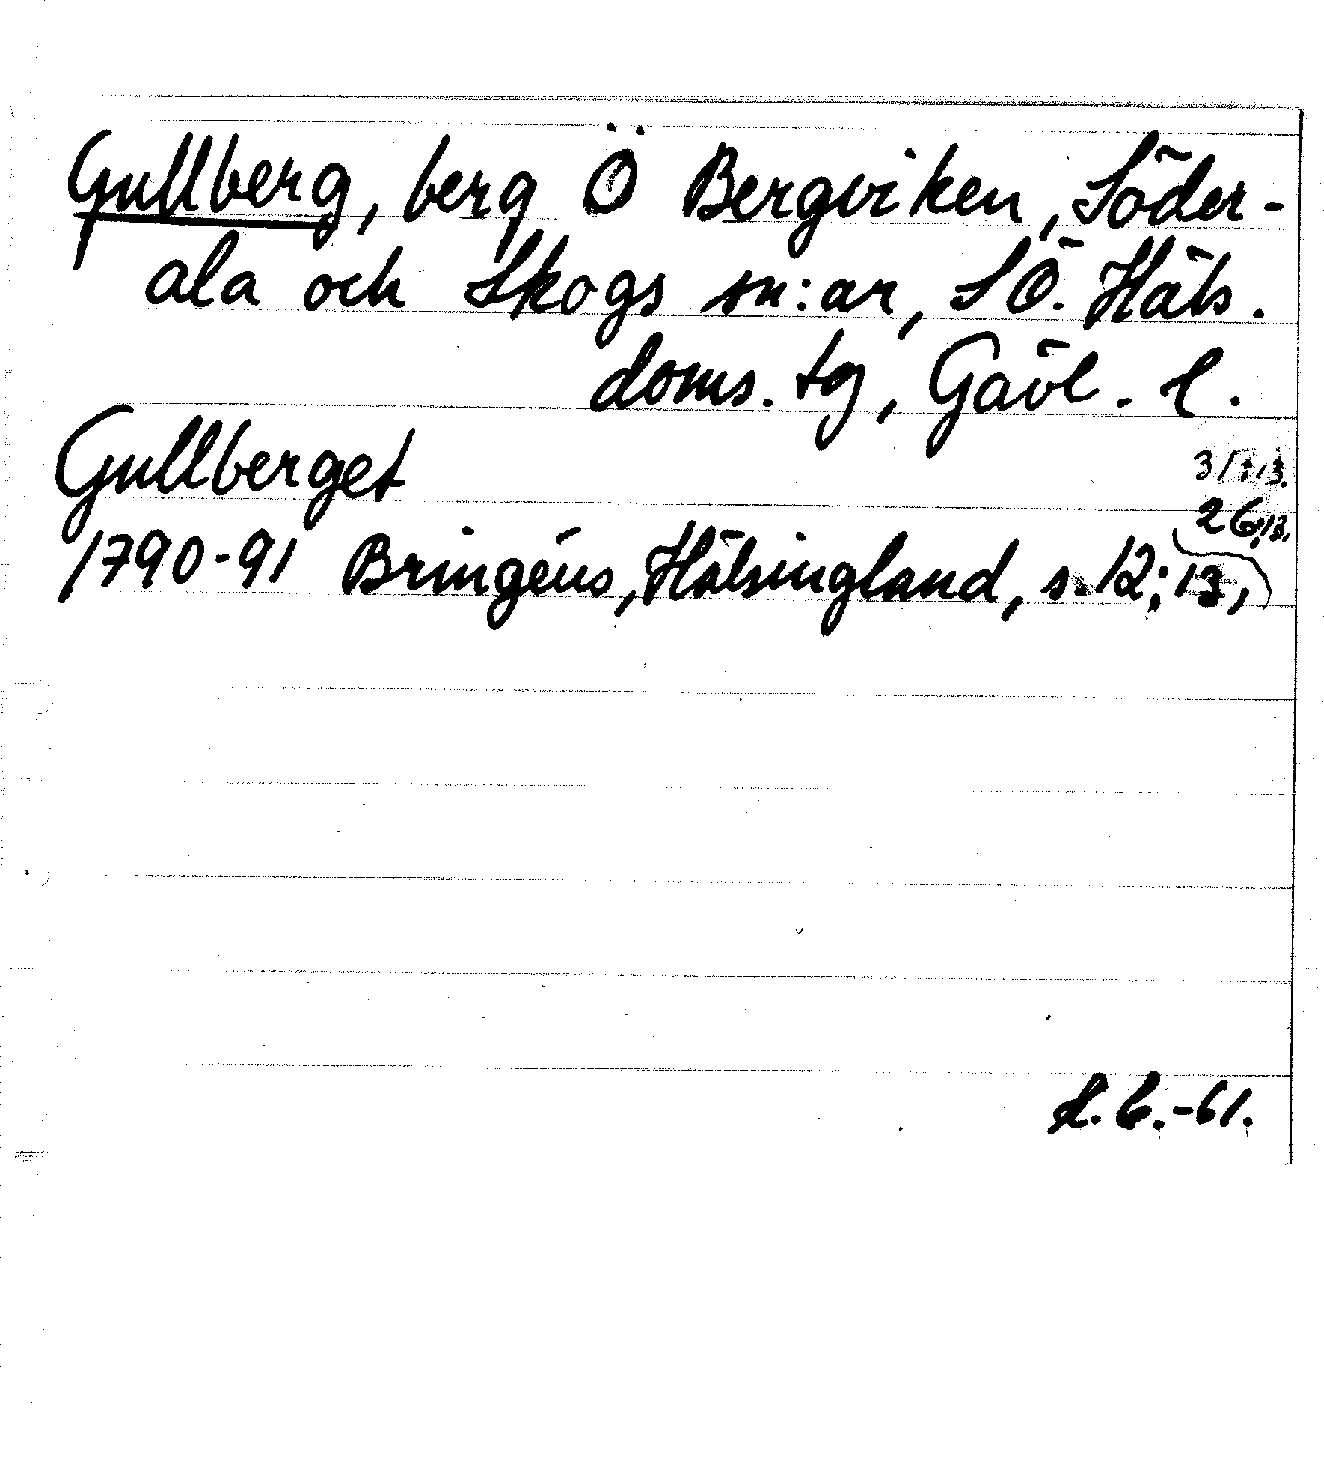 Gullberg, berg Ö Bergviken, Söder-
ala och Skogs sn:ar, SÖ. Häls.
doms. tg, Gävl. l.
Gullberget
26
1790-91 Bringéus, Hälsingland, s. 12; 13,
-61.